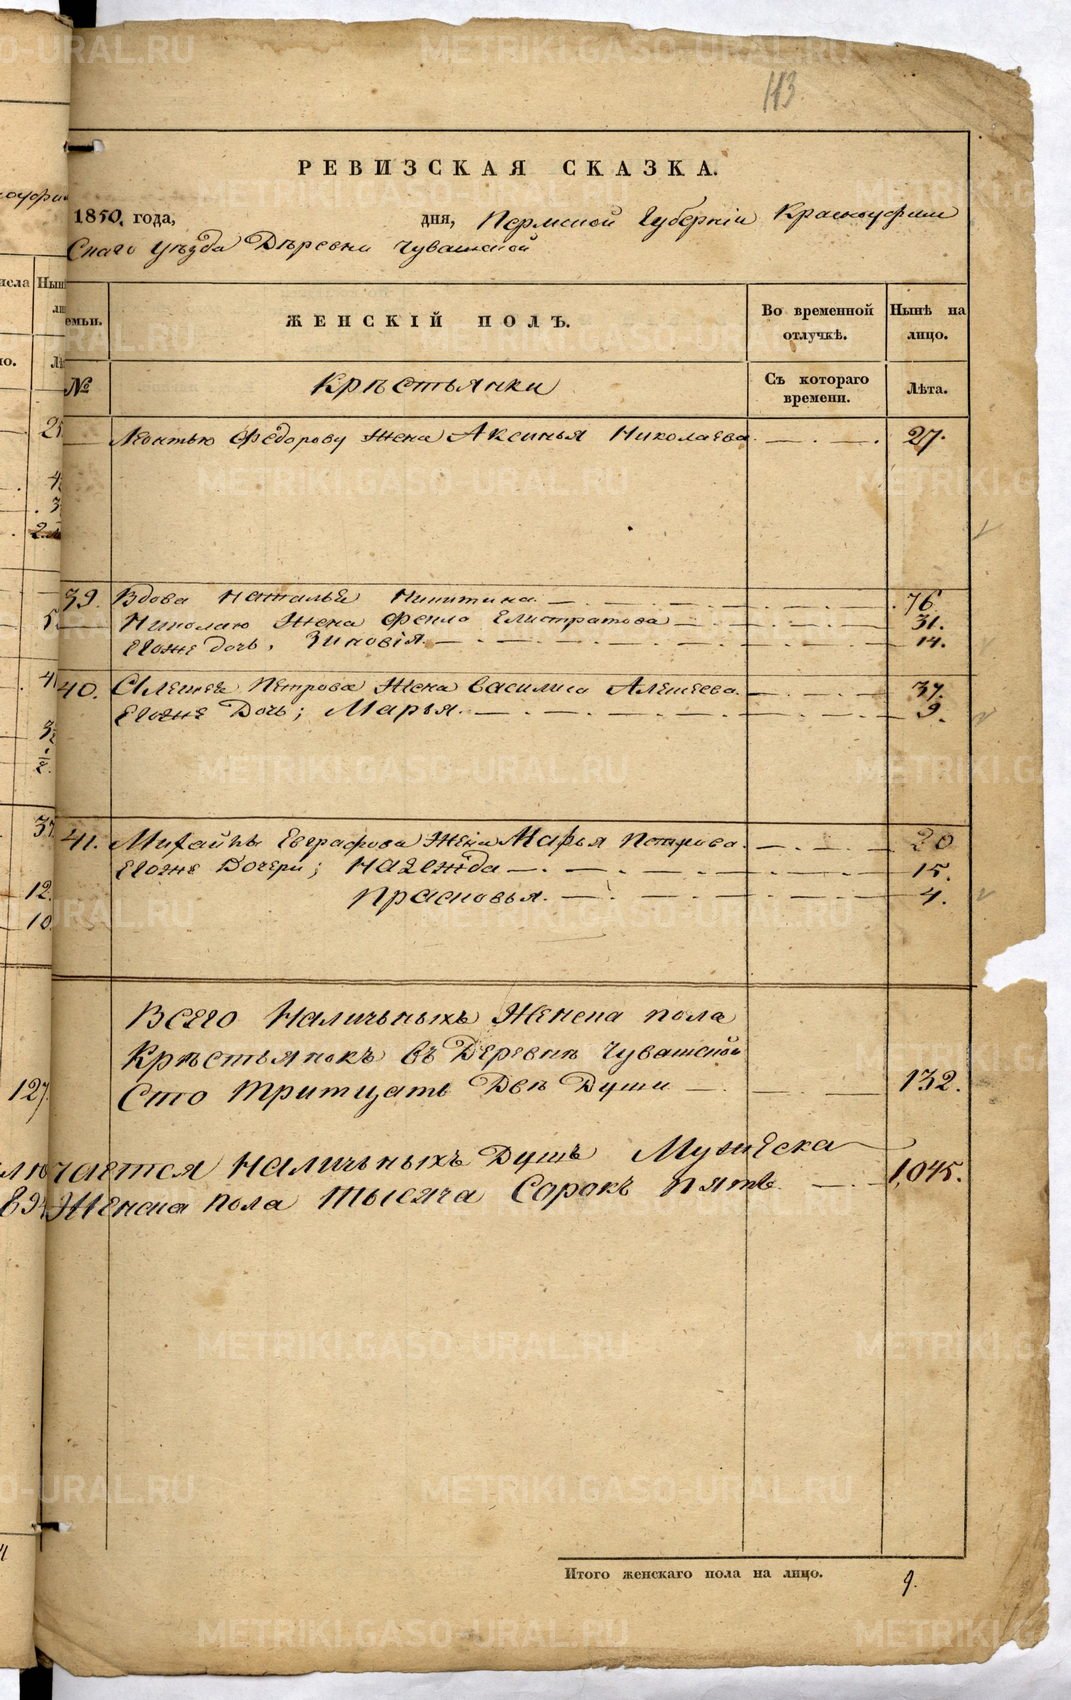 113
РЕВИЗСКАЯ СКАЗКА.
1850. года, дня, Пермской Губерніи Красноуфим
Скаго Уѣзда Деревни Чувашской
Нынѣ
емьи. ЖЕНСКІЙ ПОЛЪ. Во временной отлучкѣ. Нынѣ на лицо.
№ Крѣстьянки Съ котораго времени. Лѣта.
Леонтью Федорову Жена Аксинья Николаева. 27.
39. Вдова Наталья Никитина. 76.
Николаю Жена Фекла Елистратова 31.
Егоже дочь, Зиновія. 14.
40. Алексея Петрова Жена Василиса Алексеева. 37.
Егоже Дочь; Марья. 9.
41. Михайлы Евграфова Жена Марья Петрова. 20
Егоже Дочери; Надежда 15.
Прасковья. 4.
Всего Наличныхъ Женска пола
Крѣстьянокъ въ Деревнѣ Чувашской
Сто Тритцать Двѣ Души 132.
127.
лючается Наличныхъ Душъ Мужеска
Женска пола Тысяча Сорокъ пять 1,045.
Итого женскаго пола на лицо. 9.
METRIKI.GASO-URAL.RU